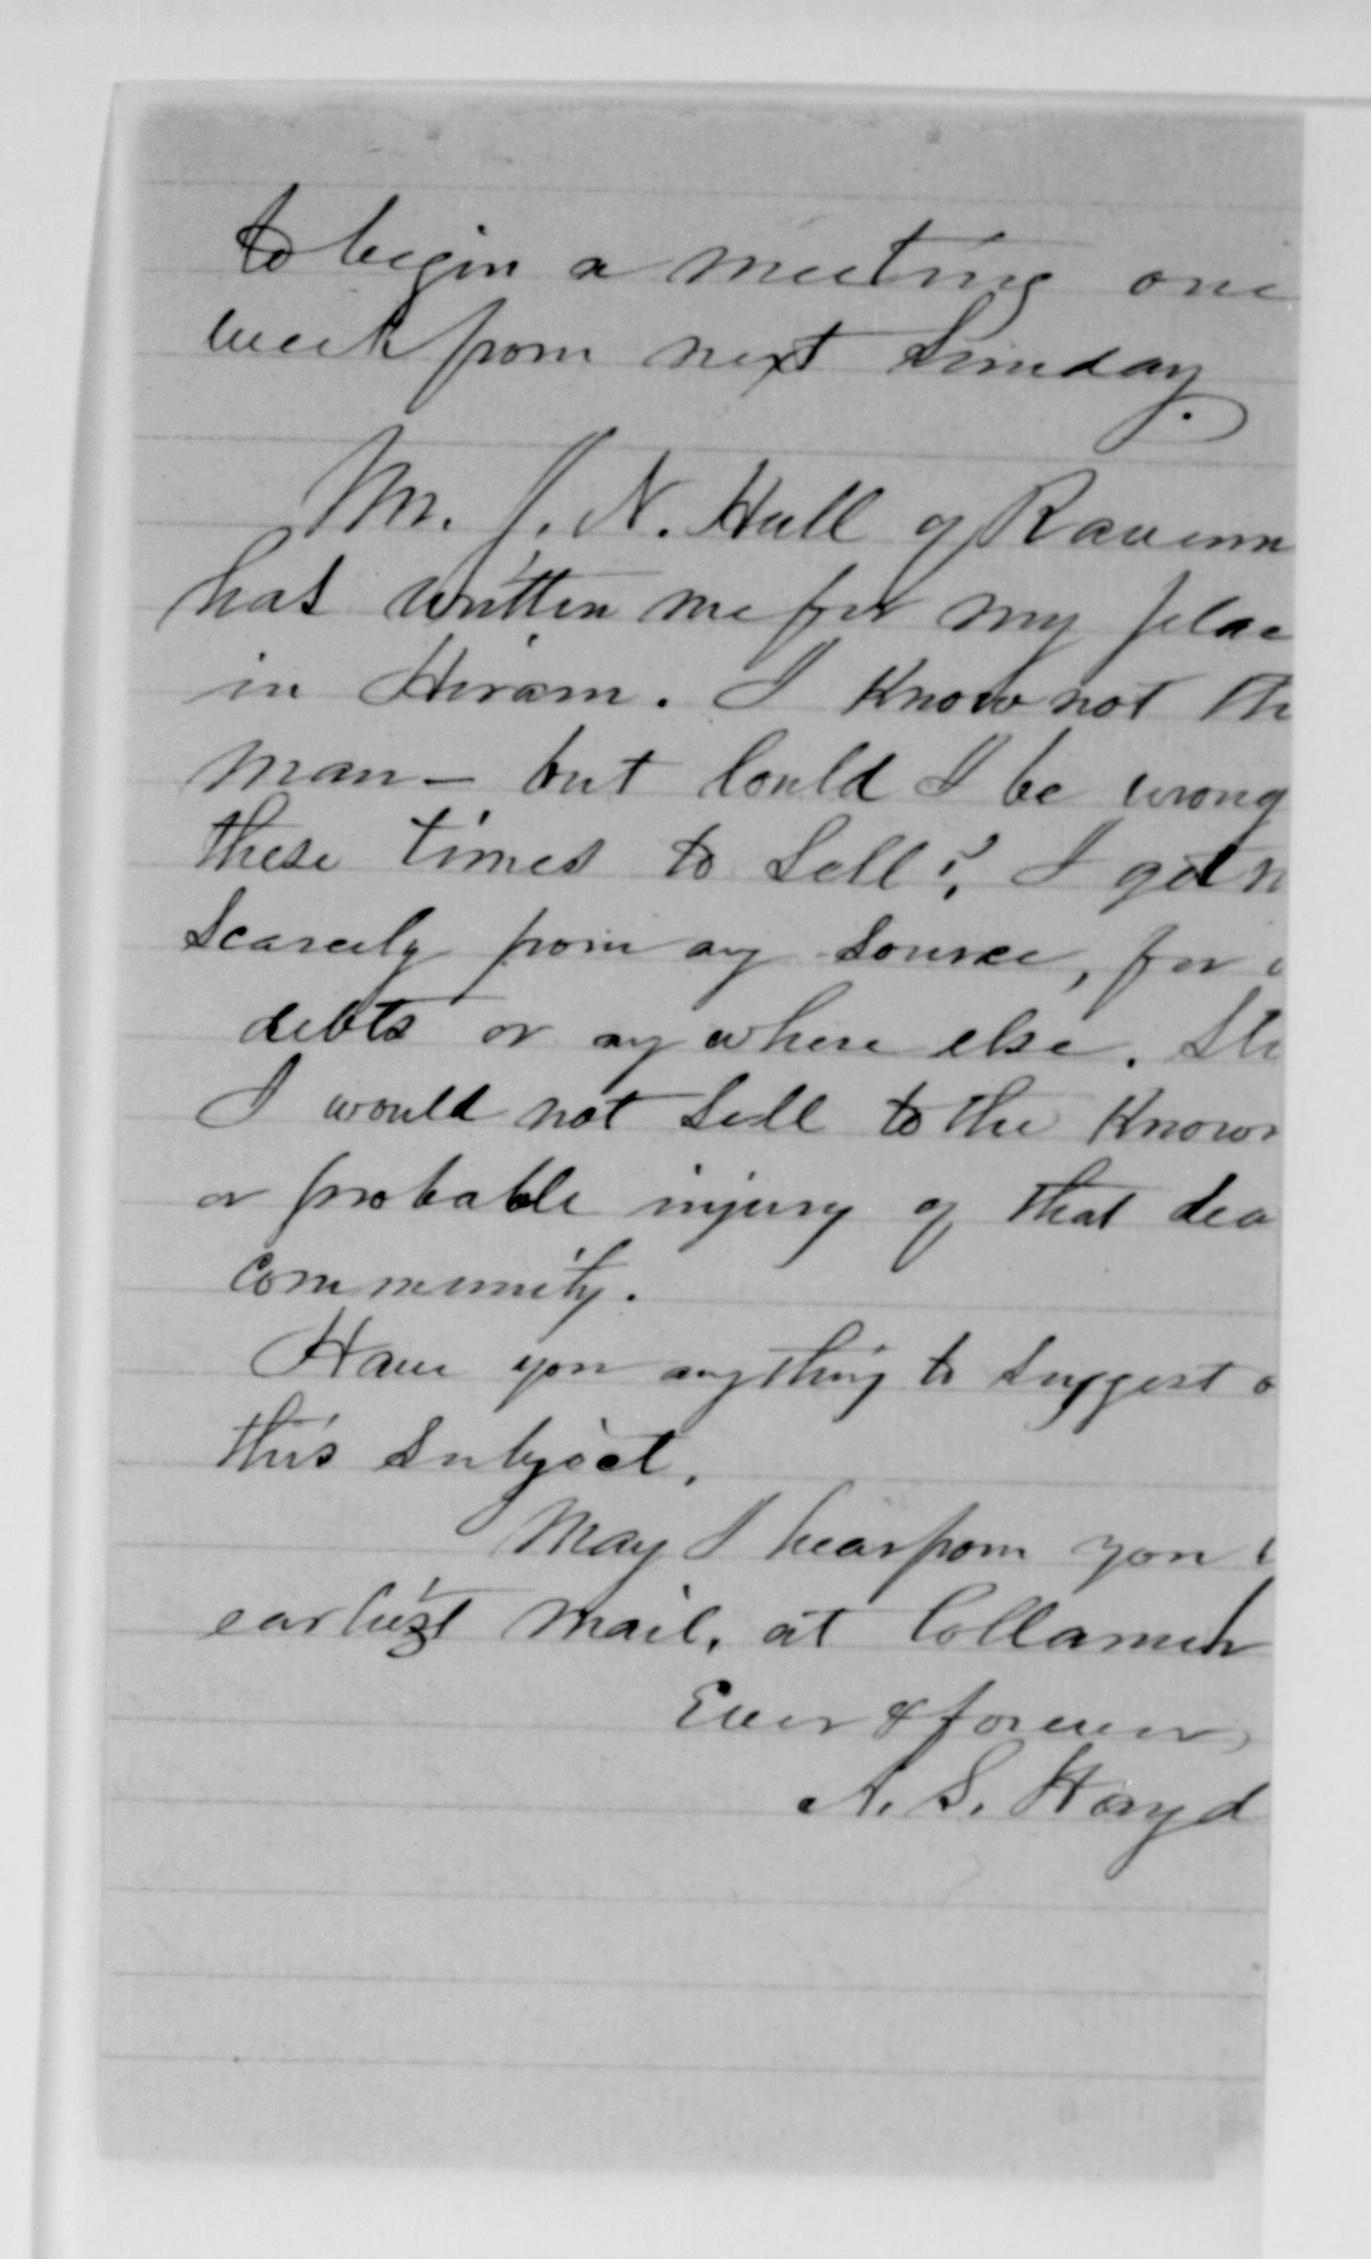 to begin a meeting one
week from next Sunday.
Mr. J. N. Hall of Ravenn
has written me for my plac
in Hiram. I know not th
man — but could I be wrong
these times to sell? I get n
scarcely from any source, for
debts or any where else. Sti
I would not sell to the know
or probable injury of that dea
community.
Have you anything to suggest o
this subject.
May I hear from you
earliest mail, at Collamer
Ever & forever,
A. S. Hayd